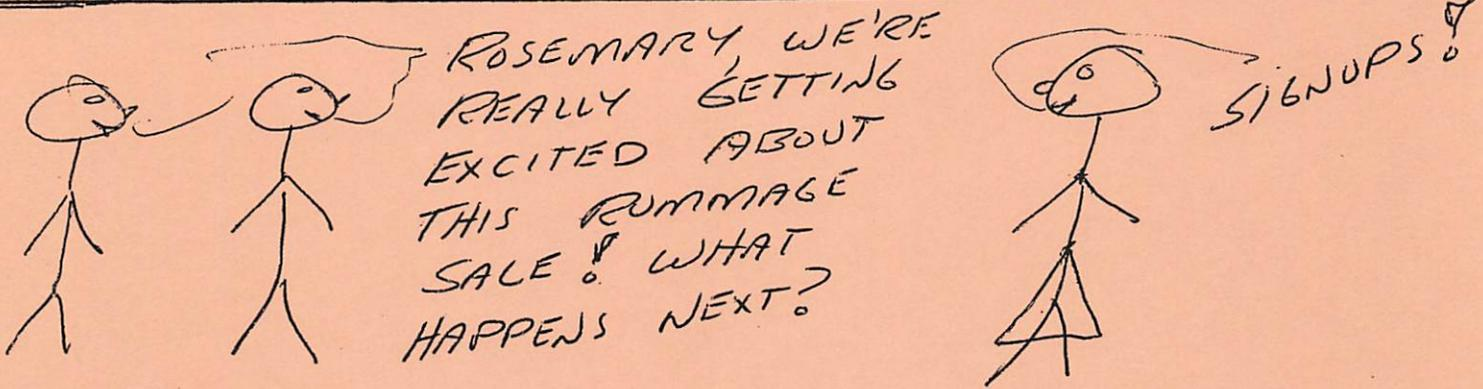 ROSEMARY, WE'RE
REALLY GETTING
EXCITED ABOUT
THIS RUMMAGE
SALE! WHAT
HAPPENS NEXT?
SIGNUPS!